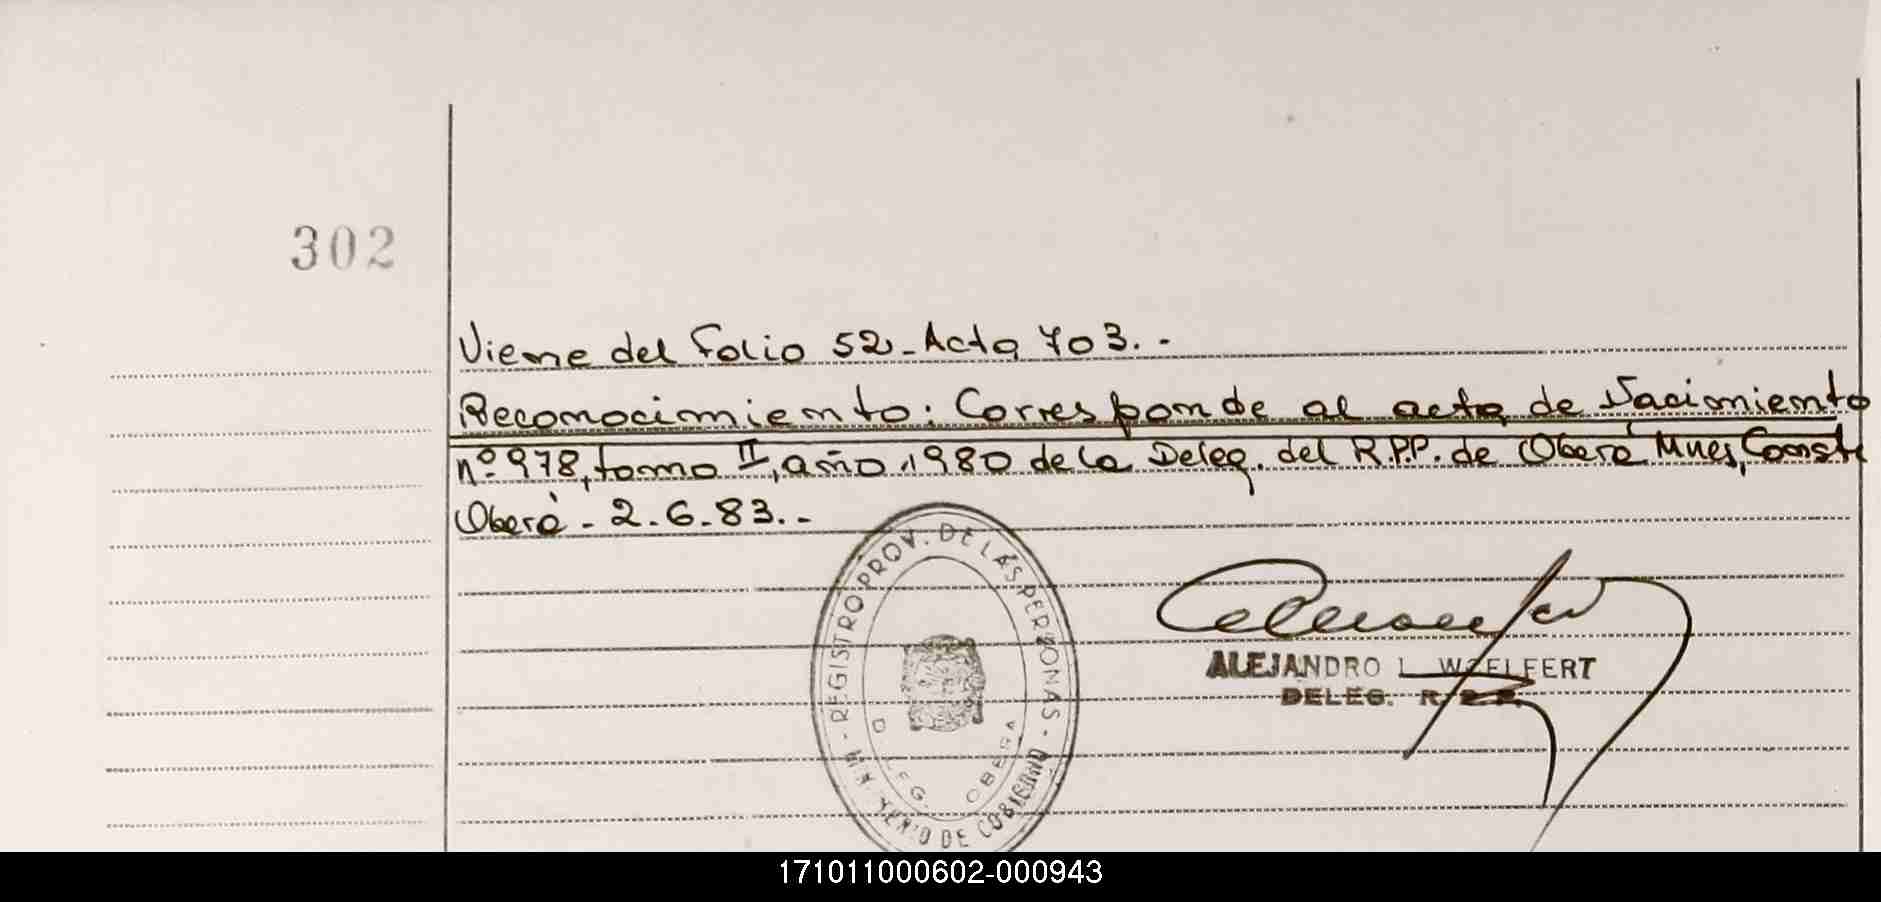 302
Viene del Folio 52-Acta 703.-
Reconocimiento: Corresponde al acta de Nacimiento
nº 978, tomo II, año 1980 de la Deleg. del R.P.P. de Oberá Mnes, Conste
Oberá - 2.6.83.-
REGISTRO PROV. DE LAS PERSONAS -
DELEG. OBERA
DE GOBIERNO
ALEJANDRO L. WZELFERT
DELEG. R.P.P.
171011000602-000943